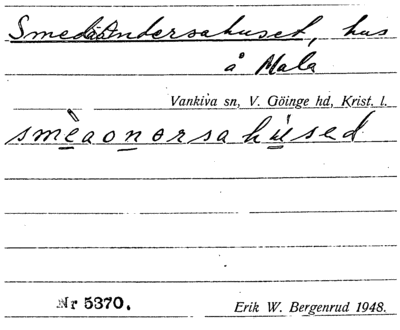 Smedaandersahuset, hus
å Mala
Vankiva sn, V. Göinge hd, Krist. l.
smèaonersahúsed
Nr 5370.
Erik W. Bergenrud 1948.